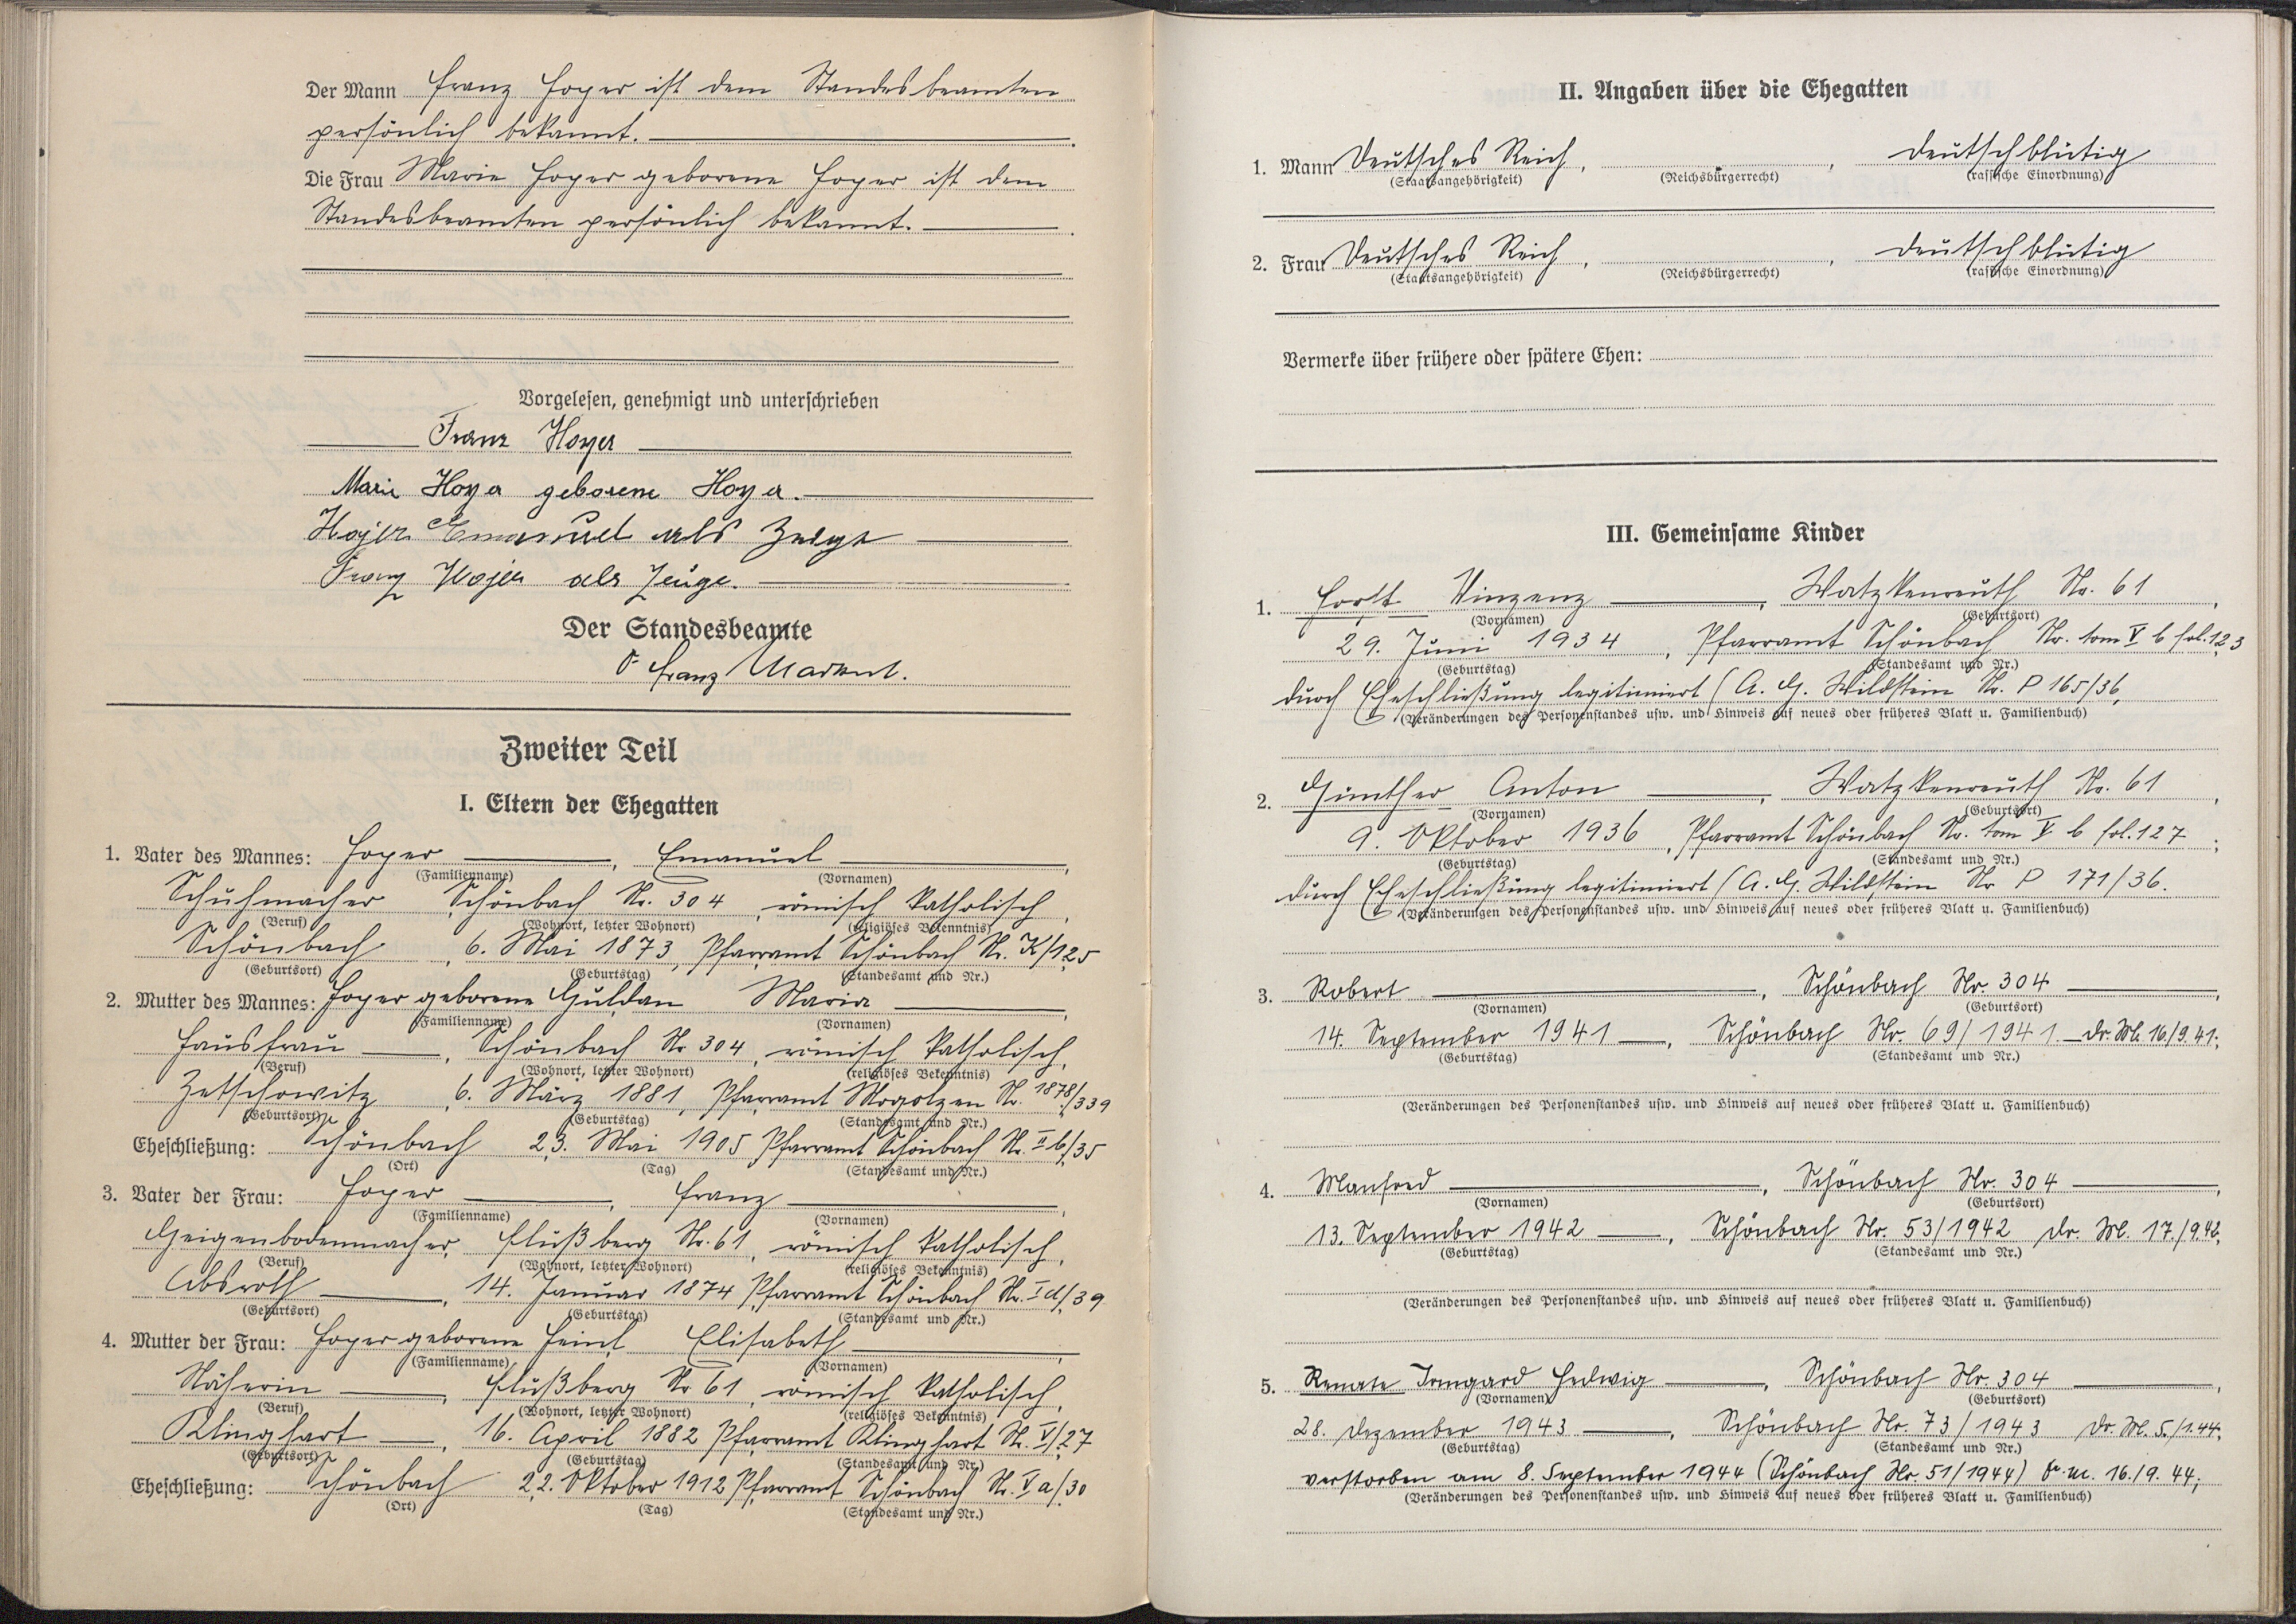 Der Mann Franz Hoyer ist dem Standesbeamten
persönlich bekannt.
Die Frau Marie Hoyer geborene Hoyer ist dem
Standesbeamten persönlich bekannt.
Vorgelesen, genehmigt und unterschrieben
Franz Hoyer
Marie Hoyer geborene Hoyer.
Hojer Emanuel als Zeuge
Franz Hojer als Zeuge.
Der Standesbeamte
Franz
Zweiter Teil
I. Eltern der Ehegatten
1. Vater des Mannes: Hoyer, Emanuel,
(Familienname) (Vornamen)
Schuhmacher, Schönbach Nr. 304, römisch katholisch,
(Beruf) (Wohnort, letzter Wohnort) (religiöses Bekenntnis)
Schönbach, 6. Mai 1873, Pfarramt Schönbach Nr. K/125
(Geburtsort) (Geburtstag) (Standesamt und Nr.)
2. Mutter des Mannes: Hoyer geborene Guldan Maria,
(Familienname) (Vornamen)
Hausfrau, Schönbach Nr 304, römisch katholisch,
(Beruf) (Wohnort, letzter Wohnort) (religiöses Bekenntnis)
Zetschowitz, 6. März 1881, Pfarramt Mogolzen Nr. 1878/339
(Geburtsort) (Geburtstag) (Standesamt und Nr.)
Eheschließung: Schönbach 23. Mai 1905 Pfarramt Schönbach Nr. II b/35
(Ort) (Tag) (Standesamt und Nr.)
3. Vater der Frau: Hoyer, Franz,
(Familienname) (Vornamen)
Geigenbodenmacher, Flußberg Nr. 61, römisch katholisch,
(Beruf) (Wohnort, letzter Wohnort) (religiöses Bekenntnis)
Absroth, 14. Januar 1874 Pfarramt Schönbach Nr. I d/39
(Geburtsort) (Geburtstag) (Standesamt und Nr.)
4. Mutter der Frau: Hoyer geborene Heinl Elisabeth,
(Familienname) (Vornamen)
Näherin, Flußberg Nr 61, römisch katholisch,
(Beruf) (Wohnort, letzter Wohnort) (religiöses Bekenntnis)
Klinghart, 16. April 1882 Pfarramt Klinghart Nr. V/27
(Geburtsort) (Geburtstag) (Standesamt und Nr.)
Eheschließung: Schönbach 22. Oktober 1912 Pfarramt Schönbach Nr. V a/30
(Ort) (Tag) (Standesamt und Nr.)
II. Angaben über die Ehegatten
1. Mann Deutsches Reich, , deutschblütig
(Staatsangehörigkeit) (Reichsbürgerrecht) (rassische Einordnung)
2. Frau Deutsches Reich, , deutschblütig
(Staatsangehörigkeit) (Reichsbürgerrecht) (rassische Einordnung)
Vermerke über frühere oder spätere Ehen:
III. Gemeinsame Kinder
1. Horst Vinzenz, Watzkenreuth Nr. 61,
(Vornamen) (Geburtsort)
29. Juni 1934, Pfarramt Schönbach Nr. tom V b fol. 123
(Geburtstag) (Standesamt und Nr.)
durch Eheschließung legitimiert (A. G. Wildstein Nr. P 165/36,
(Veränderungen des Personenstandes usw. und Hinweis auf neues oder früheres Blatt u. Familienbuch)
2. Günther Anton, Watzkenreuth Nr. 61,
(Vornamen) (Geburtsort)
9. Oktober 1936, Pfarramt Schönbach Nr. tom V b fol. 127;
(Geburtstag) (Standesamt und Nr.)
durch Eheschließung legitimiert (A. G. Wildstein Nr P 171/36.
(Veränderungen des Personenstandes usw. und Hinweis auf neues oder früheres Blatt u. Familienbuch)
3. Robert, Schönbach Nr. 304,
(Vornamen) (Geburtsort)
14. September 1941, Schönbach Nr. 69/1941. 16./9.41;
(Geburtstag) (Standesamt und Nr.)
(Veränderungen des Personenstandes usw. und Hinweis auf neues oder früheres Blatt u. Familienbuch)
4. Manfred, Schönbach Nr. 304,
(Vornamen) (Geburtsort)
13. September 1942, Schönbach Nr. 53/1942 17./9.42;
(Geburtstag) (Standesamt und Nr.)
(Veränderungen des Personenstandes usw. und Hinweis auf neues oder früheres Blatt u. Familienbuch)
5. Renate Irmgard Hedwig, Schönbach Nr. 304,
(Vornamen) (Geburtsort)
28. Dezember 1943, Schönbach Nr. 73/1943 5./1.44;
(Geburtstag) (Standesamt und Nr.)
verstorben am 8. September 1944 (Schönbach Nr. 51/1944) 16./9. 44;
(Veränderungen des Personenstandes usw. und Hinweis auf neues oder früheres Blatt u. Familienbuch)